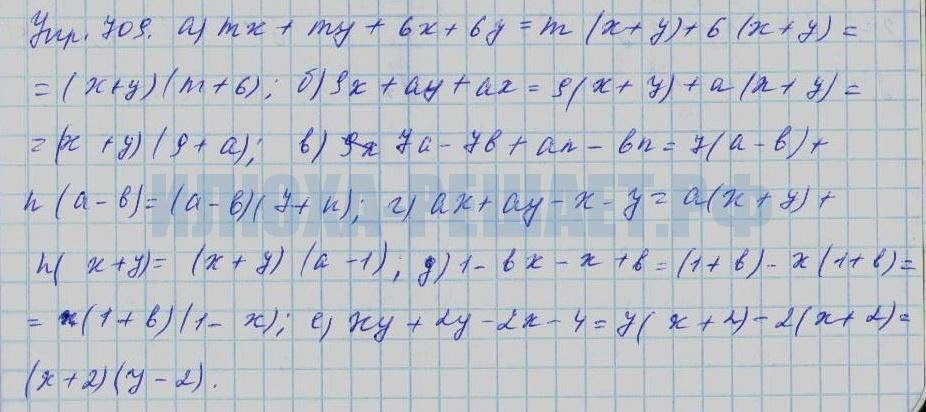 Упр. 709. а) mx + my + 6x + 6y = m (x+y) + 6 (x+y) =
= (x+y) (m+6); б) 9x + ay + ax = 9(x+y) + a (x+y) =
= (x+y) (9+a); в) 7a - 7в + an - вn = 7(a-в) +
n (a-в) = (a-в) (7+n); г) ax + ay - x - y = a(x+y) +
n( x+y) = (x+y) (a-1); д) 1 - вx - x + в = (1+в) - x (1+в) =
= (1+в) (1-x); е) xy + 2y - 2x - 4 = y( x+2) - 2(x+2) =
(x+2) (y-2).
ИЛЮХА-РЕШАЕТ.РФ